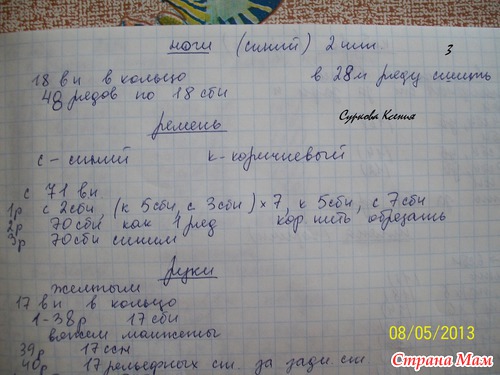 ноги (синий) 2 шт. 3
18 вп в кольцо в 28м ряду сшить
48 рядов по 18 сбн
Суркова Ксения
ремень
с - синий к - коричневый
с 71 вп
1р с 2сбн, (к 5сбн, с 3сбн) × 7, к 5сбн, с 7сбн
2р 70сбн как 1 ряд кор. нить обрезать
3р 70сбн синим
руки
желтым
17 вп в кольцо
1-38р 17 сбн
вяжем манжеты
39р 17 ссн
40р 17 рельефных ст. за задн. ст.
08/05/2013
Страна Мам